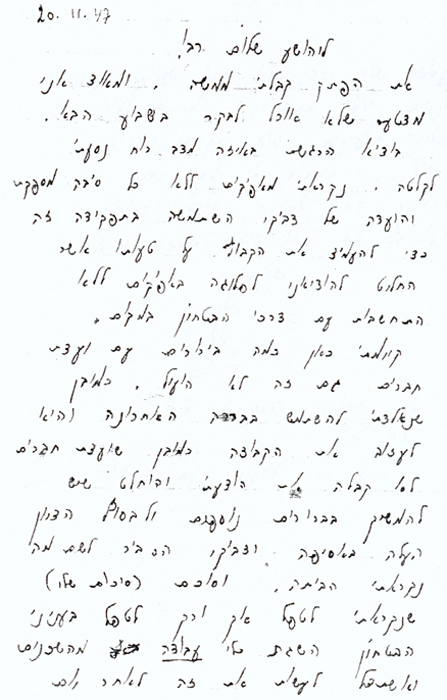 20.11.47
ליהושע שלום רב!
את הפתק קבלתי ממשה. ומאוד אני
מצטער שלא אוכל לבקר בשבוע הבא.
בודאי הרגשת באיזה מצב רוח נסעתי
לקלטה. נקראתי מאפיקים ללא כל סיבה מספקת
והועדה של דביקי השתמשה בתפקידה זה
כדי להעמיד את הקבוץ על טעותו אשר
החליט להוציאני לפלוגה באפיקים ללא
התחשבות עם צרכי הבטחון במקום.
קיימתי כאן כמה בירורים עם ועדת
חברים גם זה לא הועיל. כמובן
שנאלצתי להשתמש בברירה האחרונה והיא
לעזוב את הקבוצה כמובן שועדת חברים
לא קבלה את הודעתי והוחלט שיש
להמשיך בברורים נוספים ולבסוף הדיון
העלה באסיפה וצביקי הסביר לשם מה
נקראתי הביתה. וסוכם (סיכום שלו)
שנקראתי לטפל אך ורק לטפל בעניני
הבטחון השגת כלי עבודה מהשכנים
ואשתדל לעשות את זה לאחר יום